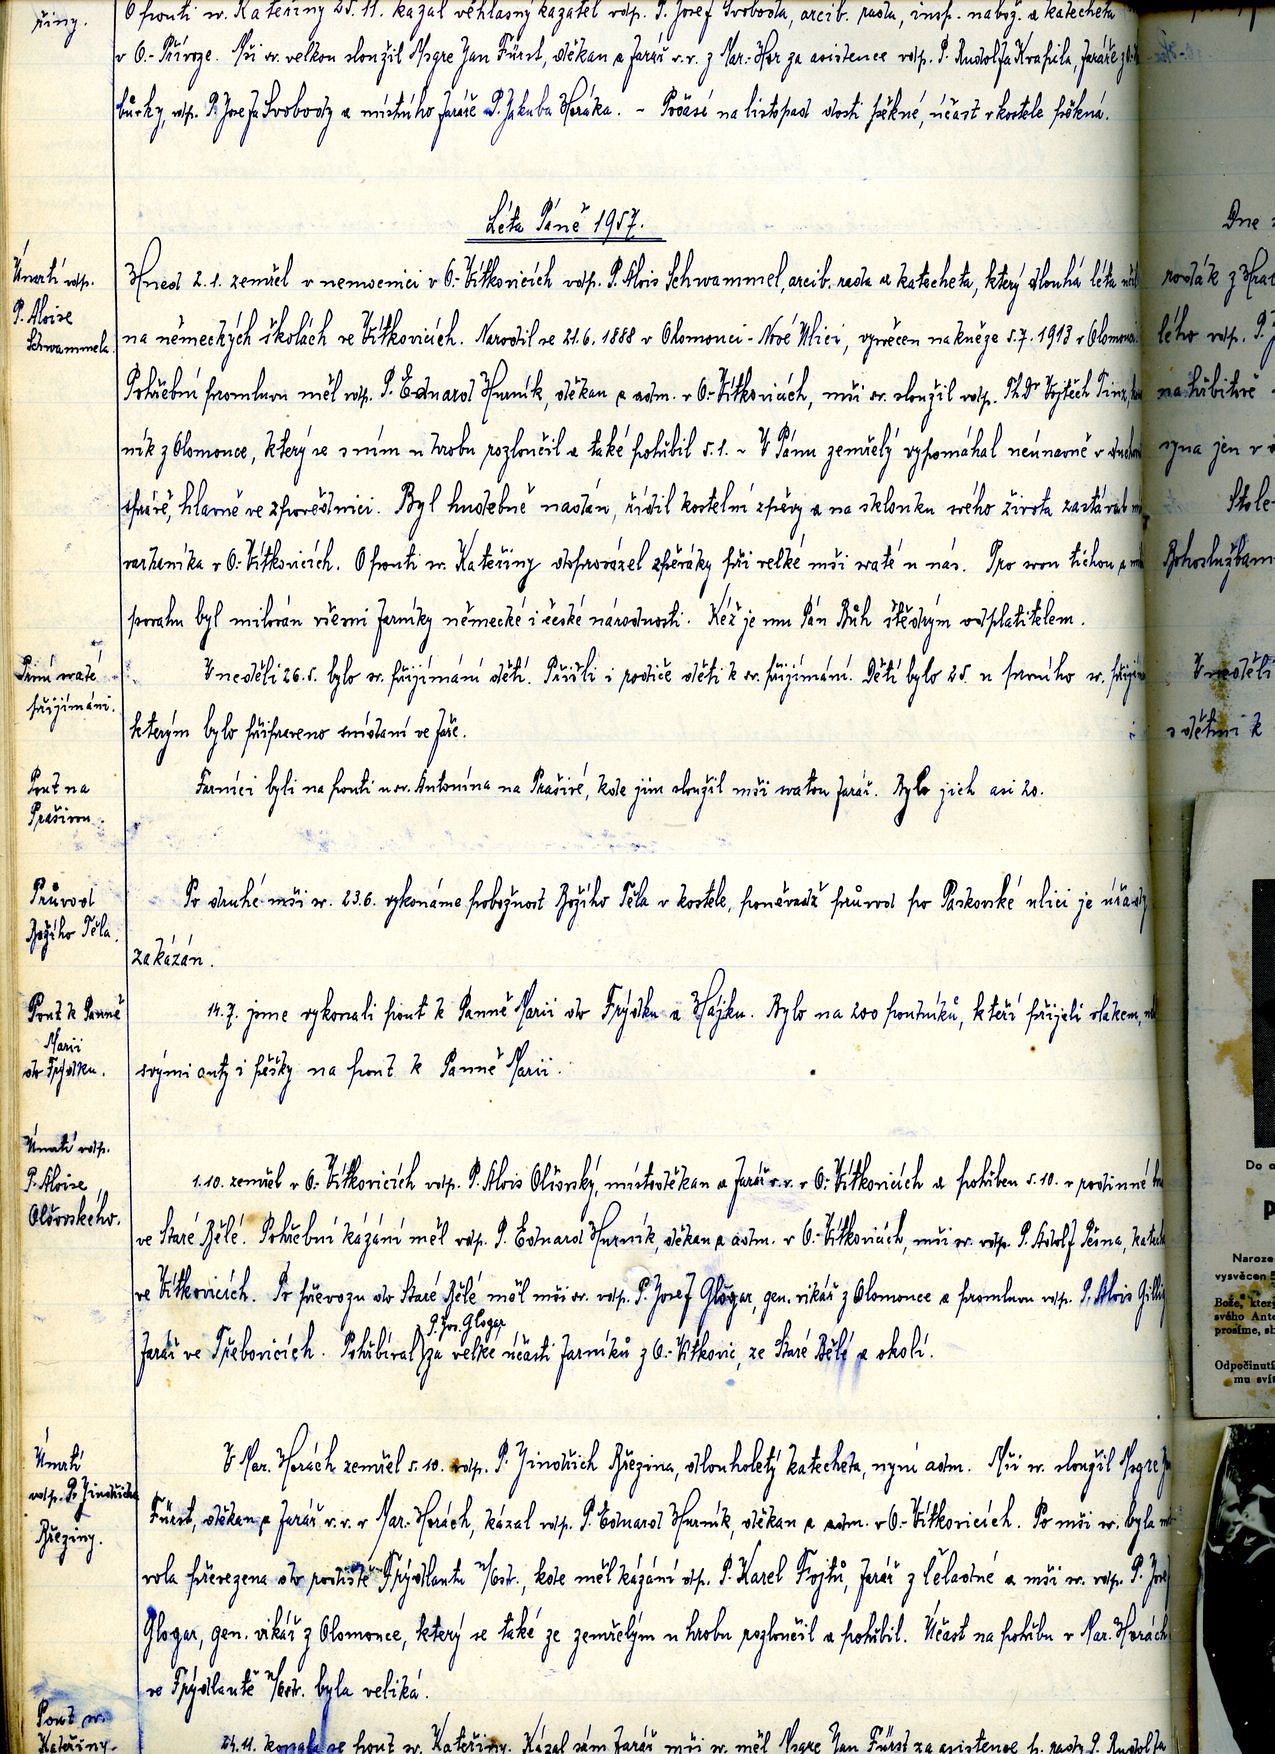 řiny.
O pouti sv. Kateřiny 25. 11. kázal věhlasný kazatel vdp. P. Josef Svoboda, arcib. rada, insp. nábož. a katecheta
v O.-Přívoze. Mši sv. velkou sloužil Msgre Jan Fürst, děkan a farář v.v. z Mar. Hor za asistence vdp. P. Rudolfa Kvapila, faráře z
bůrky, vdp. P. Josefa Svobody a místního faráře P. Jakuba Horáka. - Počasí na listopad dosti pěkné, účast v kostele pěkná.
Léta Páně 1957.
Úmrtí vdp.
P. Aloise
Schwammela.
Hned 2.1. zemřel v nemocnici v O.-Vítkovicích vdp. P. Alois Schwammel, arcib. rada a katecheta, který dlouhá léta
na německých školách ve Vítkovicích. Narodil se 21.6. 1888 v Olomouci - Nové Ulici, vysvěcen na kněze 5.7. 1913 v Olomouci
Pohřební promluvu měl vdp. P. Eduard Hurník, děkan a adm. v O.-Vítkovicích, mši sv. sloužil vdp. ThDr Vojtěch Tinz,
ník z Olomouce, který se s ním u hrobu rozloučil a také pohřbil 5.1. - V Pánu zemřelý vypomáhal neúnavně v
správě, hlavně ve zpovědnici. Byl hudebně nadán, řídil kostelní zpěvy a na sklonku svého života zastával
varhaníka v O.-Vítkovicích. O pouti sv. Kateřiny doprovázel zpěváky při velké mši svaté u nás. Pro svou tichou a
povahu byl milován všemi farníky německé i české národnosti. Kéž je mu Pán Bůh štědrým odplatitelem.
První svaté
přijímání.
V neděli 26.5. bylo sv. přijímání dětí. Přišli i rodiče dětí k sv. přijímání. Dětí bylo 25 u prvního sv.
kterým bylo připraveno snídaní ve faře.
Pouť na
Prašivou.
Farníci byli na pouti u sv. Antonína na Prašivé, kde jim sloužil mši svatou farář. Bylo jich asi 20.
Průvod
Božího Těla.
Po druhé mši sv. 23.6. vykonáme pobožnost Božího Těla v kostele, poněvadž průvod po Paskovské ulici je
zakázán.
Pouť k Panně
Marii
do Frýdku.
14.7. jsme vykonali pouť k Panně Marii do Frýdku a Hájku. Bylo na 200 poutníků, kteří přijeli vlakem,
svými auty i pěšky na pouť k Panně Marii.
Úmrtí vdp.
P. Aloise
Olšovského.
1.10. zemřel v O.-Vítkovicích vdp. P. Alois Olšovský, místoděkan a farář v.v. v O.-Vítkovicích a pohřben 5.10. v rodinné
ve Staré Bělé. Pohřební kázání měl vdp. P. Eduard Hurník, děkan a adm. v O.-Vítkovicích, mši sv. vdp. P. Adolf Pěsna,
ve Vítkovicích. Po převozu do Staré Bělé měl mši sv. vdp. P. Josef Glogar, gen. vikář z Olomouce a promluvu vdp. P. Alois
P. Jos. Glogar
farář ve Třebovicích. Pohřbíval za velké účasti farníků z O.-Vítkovic, ze Staré Bělé a okolí.
Úmrtí
vdp. P. Jindřicha
Březiny.
V Mar. Horách zemřel 5.10. vdp. P. Jindřich Březina, dlouholetý katecheta, nyní adm. Mši sv. sloužil Msgre
Fürst, děkan a farář v.v. v Mar. Horách, kázal vdp. P. Eduard Hurník, děkan a adm. v O.-Vítkovicích. Po mši sv. byla
vola převezena do rodiště Frýdlantu n/Ostr., kde měl kázání dp. P. Karel Fojtů, farář z Čeladné a mši sv. vdp. P.
Glogar, gen. vikář z Olomouce, který se také ze zemřelým u hrobu rozloučil a pohřbil. Účast na pohřbu v Mar. Horách
ve Frýdlantě n/Ostr. byla veliká.
Pouť sv.
Kateřiny.
24.11. konala se pouť sv. Kateřiny. Kázal sám farář mši sv. měl Msgre Jan Fürst za asistence b. rady P. Rudolfa
Dne
rodák z
lého vdp. P.
na hřbitově
syna jen v
Stole-
Bohoslužbam
V neděli
s dětmi k
Do
P
Naroze
vysvěcen
Bože, kter
svého Ante
prosíme, sb
Odpočinutí
mu sví